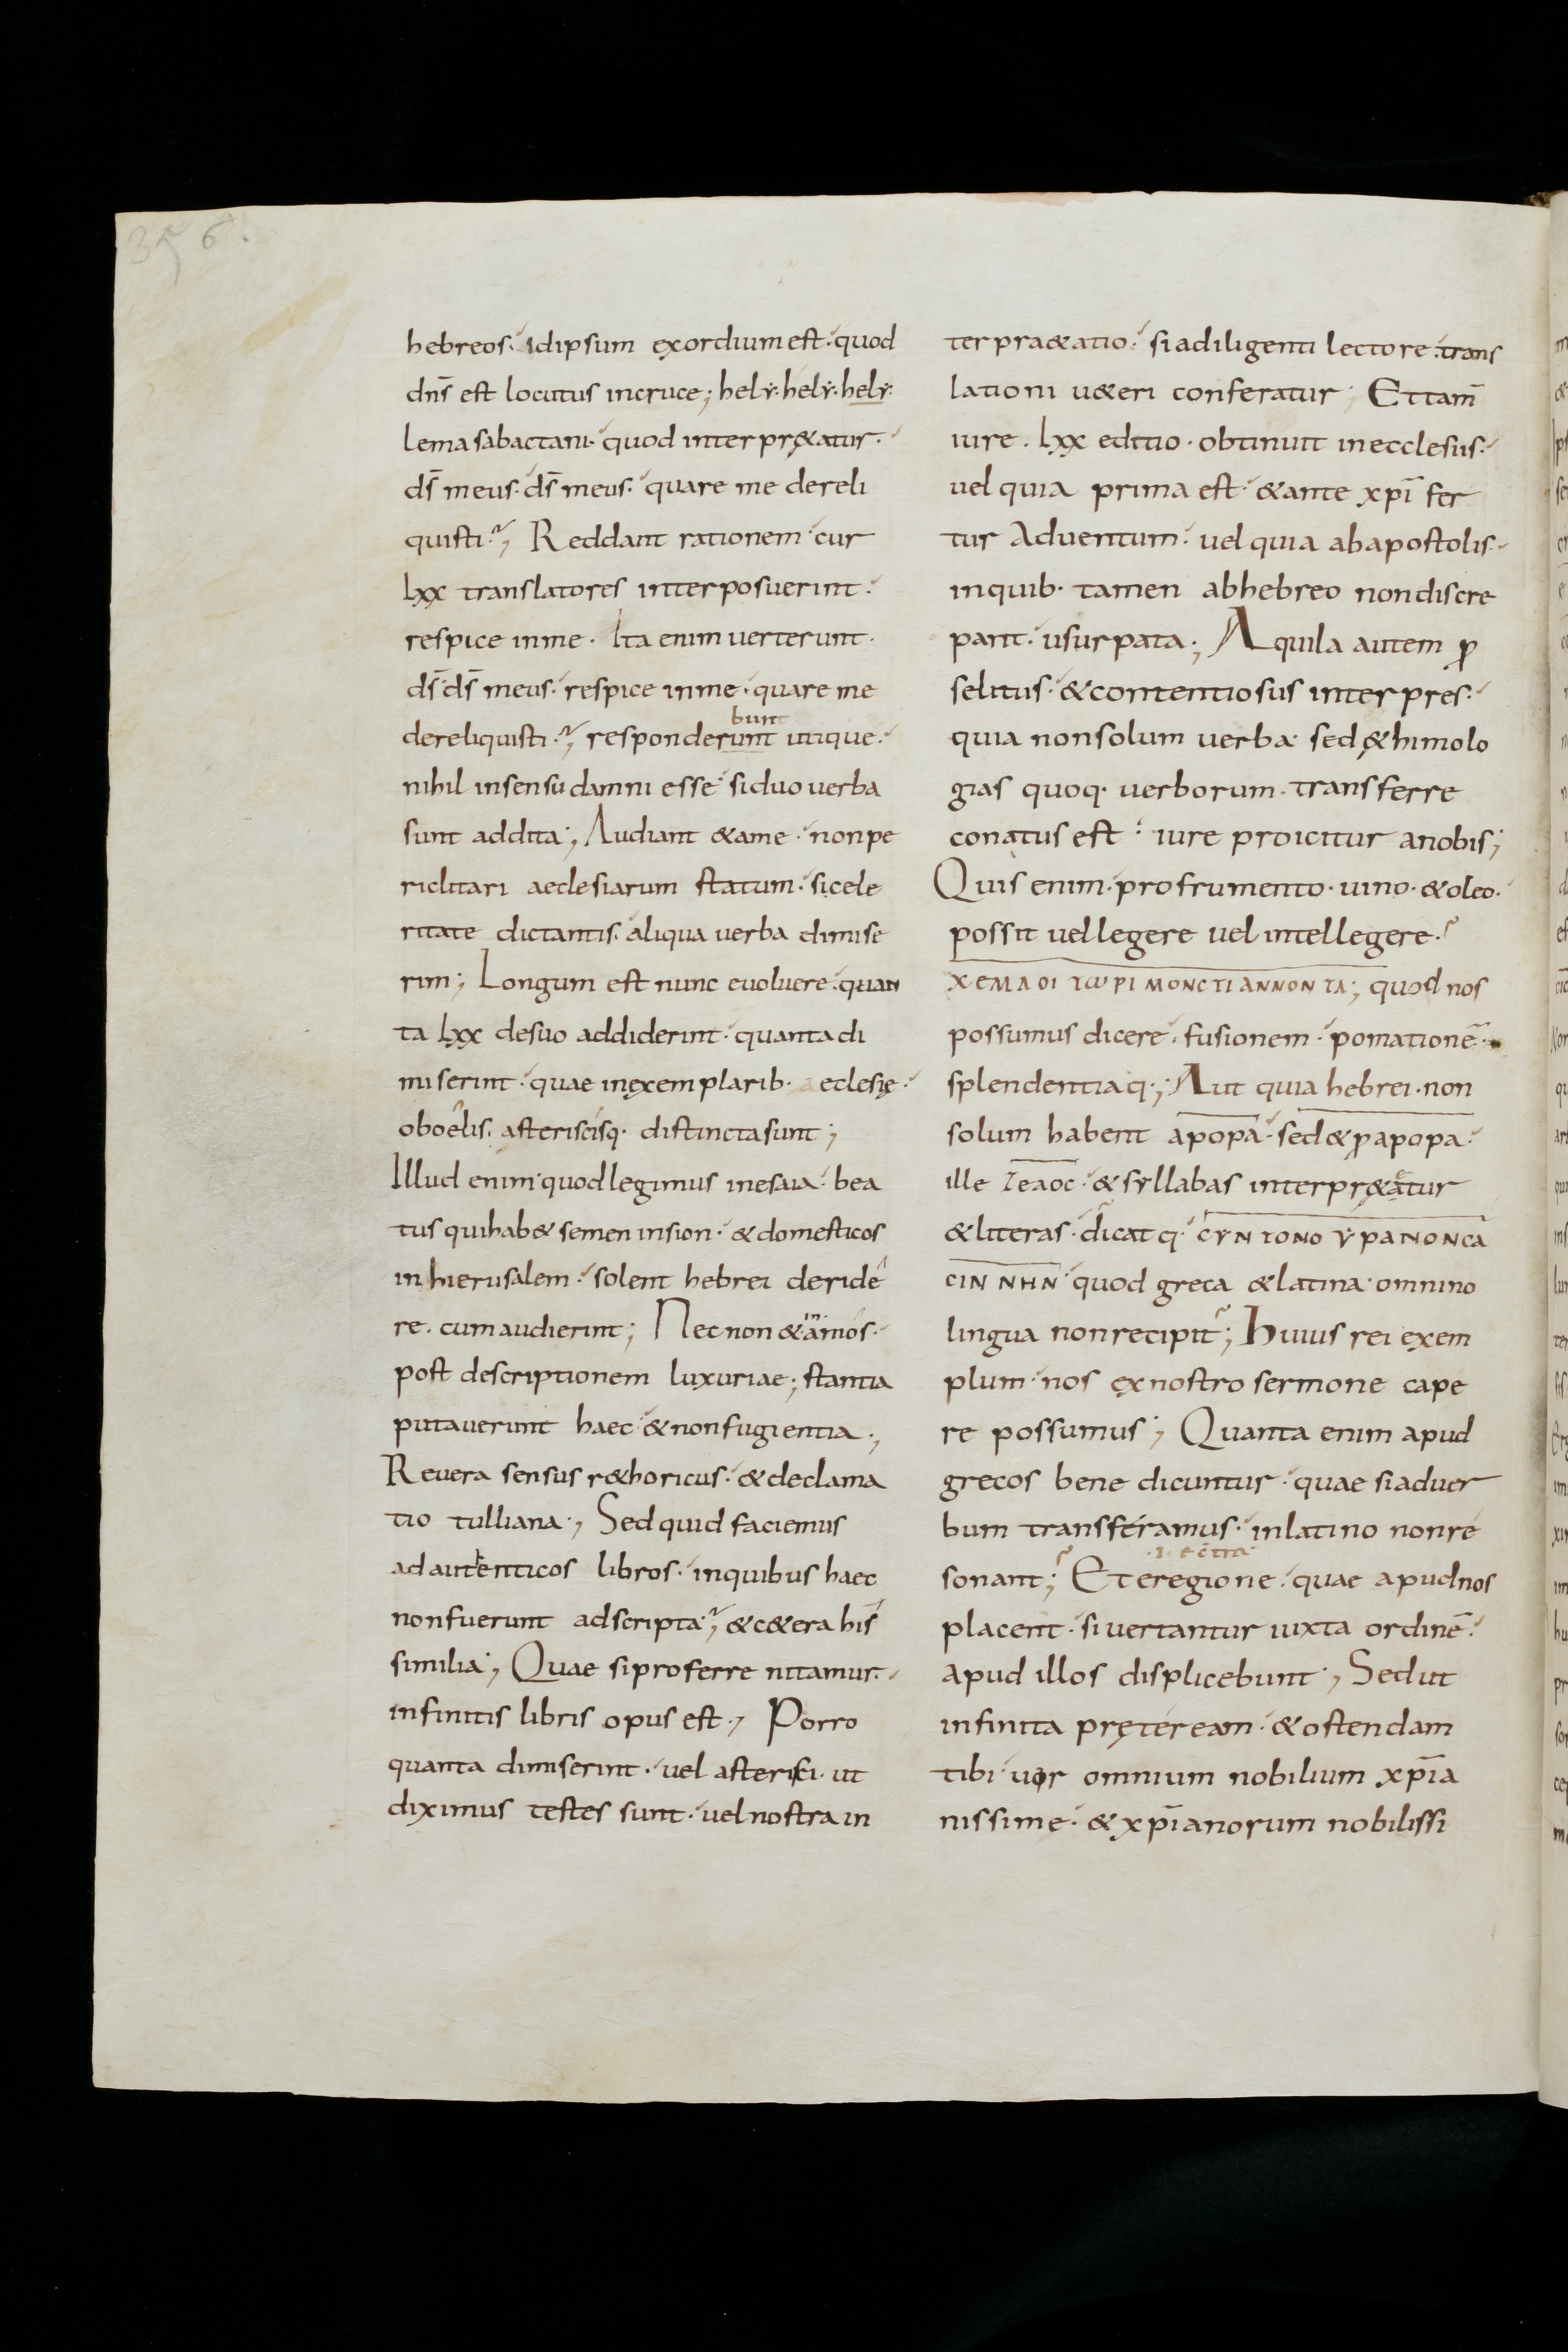 356.
hebreos. idipsum exordium est. quod
dn̄s est locutus incruce; hely. hely. hely.
lema sabactani. quod interpr&atur.
dī meus. dī meus. quare me dereli
quisti; Reddant rationem cur
lxx translatores interposuerint.
respice inme. Ita enim uerterunt.
dī dī meus. respice inme. quare me
bunt
dereliquisti; responderunt utique.
nihil insensu damni esse siduo uerba
sunt addita; Audiant &ame. nonpe
riclitari aeclesiarum statum. sicele
ritate dictantis. aliqua uerba dimise
rim; Longum est nunc euoluere. quan
ta lxx desuo addiderint. quanta di
miserint. quae inexemplarib. aeclesię.
oboelis. asteriscisq. distincta sunt;
Illud enim quod legimus inesaia. bea
tus quihab& semen insion. & domesticos
inhierusalem. solent hebrei deride
re. cumaudierint; Nec non & inamos.
post descriptionem luxuriae; stantia
putauerunt haec & nonfugientia;
Reuera sensus r&horicus. & declama
tio tulliana; Sed quid faciemus
ad autenticos libros. inquibus haec
nonfuerunt adscripta; & c&era his
similia; Quae siproferre nitamur.
infinitis libris opus est; Porro
quanta dimiserint. uel asterisci. ut
diximus testes sunt. uel nostra in
terpra&atio. siadiligenti lectore. trans
lationi u&eri conferatur; Et tam̄
iure. lxx editio. obtinuit inecclesiis.
uel quia prima est. & ante xp̄i fer
tur Aduentum. uel quia abapostolis.
inquib. tamen abhebreo nondiscre
pant. usurpata; Aquila autem ꝓ
selitus. & contentiosus interpres.
quia nonsolum uerba sed &himolo
gias quoq. uerborum. transferre
conatus est. iure proicitur anobis;
Quis enim. profrumento. uino. & oleo.
possit uel legere uel intellegere.
ΧΕΜΑΟΙ ΙωΡΙΜΟΝCΤΙΑΝΝΟΝΤΑ; quod nos
possumus dicere. fusionem. pomationē.
splendentiaq.; Aut quia hebrei. non
solum habent apopa. sed & papopa.
ille Ιεαος. & syllabas interpr&atur
& literas. dicat q. CΥΝΤΟΝΟΥΡΑΝΟΝCΑ
CΙΝΝΗΝ quod greca & latina omnino
lingua nonrecipit; Huius rei exem
plum nos exnostro sermone cape
re possumus; Quanta enim apud
grecos bene dicuntur. quae siaduer
bum transferamus. inlatino nonre
.i. ectra
sonant; Et eregione. quae apudnos
placent. si uertantur iuxta ordinē.
apud illos displicebunt; Sed ut
infinita pręteream. & ostendam
tibi uor omnium nobilium xp̄ia
nissime. & xp̄ianorum nobilissi